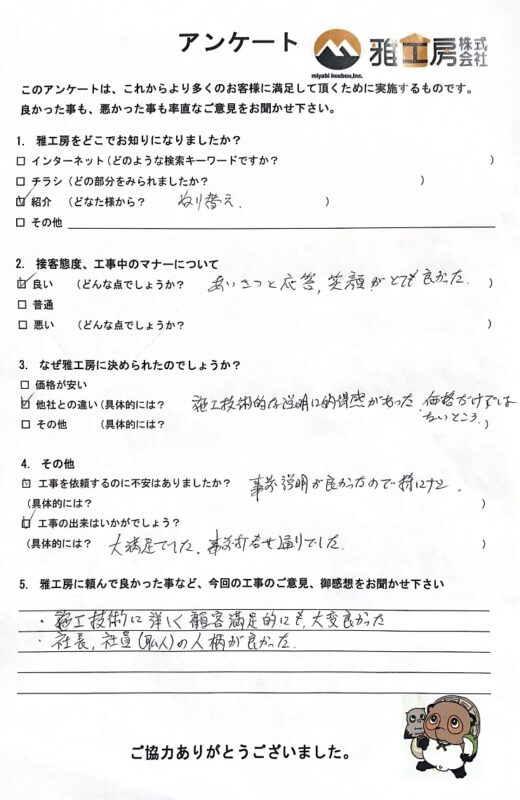 アンケート
miyabi koubou,Inc.
雅工房 株式会社
このアンケートは、これからより多くのお客様に満足して頂くために実施するものです。
良かった事も、悪かった事も率直なご意見をお聞かせ下さい。
1. 雅工房をどこでお知りになりましたか?
□ インターネット(どのような検索キーワードですか? )
□ チラシ (どの部分をみられましたか? )
☑ 紹介 (どなた様から? ぬり替え. )
□ その他
2. 接客態度、工事中のマナーについて
☑ 良い (どんな点でしょうか? あいさつと応答,笑顔がとても良かった. )
□ 普通
□ 悪い (どんな点でしょうか? )
3. なぜ雅工房に決められたのでしょうか?
□ 価格が安い
☑ 他社との違い(具体的には? 施工技術的な説明に納得感があった.価格だけでは
□ その他 (具体的には? ないところ.)
4. その他
☑ 工事を依頼するのに不安はありましたか? 事前説明が良かったので特にナシ.
(具体的には? )
☑ 工事の出来はいかがでしょう?
(具体的には? 大満足でした.事前打合せ通りでした. )
5. 雅工房に頼んで良かった事など、今回の工事のご意見、御感想をお聞かせ下さい
・施工技術に詳しく顧客満足的にも,大変良かった
・社長,社員(職人)の人柄が良かった.
ご協力ありがとうございました。